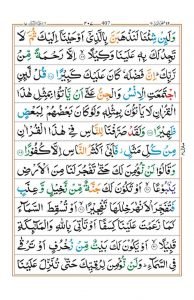 407
وَلَئِنْ شِئْنَا لَنَذْهَبَنَّ بِالَّذِيْٓ اَوْحَيْنَآ اِلَيْكَ ثُمَّ لَا
تَجِدُ لَكَ بِهٖ عَلَيْنَا وَكِيْلًا اِلَّا رَحْمَةً مِّنْ
رَّبِّكَ اِنَّ فَضْلَهٗ كَانَ عَلَيْكَ كَبِيْرًا قُلْ لَّئِنِ
اجْتَمَعَتِ الْاِنْسُ وَالْجِنُّ عَلٰٓى اَنْ يَّاْتُوْا بِمِثْلِ هٰذَا
الْقُرْاٰنِ لَا يَاْتُوْنَ بِمِثْلِهٖ وَلَوْ كَانَ بَعْضُهُمْ لِبَعْضٍ
ظَهِيْرًا وَلَقَدْ صَرَّفْنَا لِلنَّاسِ فِيْ هٰذَا الْقُرْاٰنِ
مِنْ كُلِّ مَثَلٍ فَاَبٰٓى اَكْثَرُ النَّاسِ اِلَّا كُفُوْرًا
وَقَالُوْا لَنْ نُّؤْمِنَ لَكَ حَتّٰى تَفْجُرَ لَنَا مِنَ الْاَرْضِ
يَنْۢبُوْعًا اَوْ تَكُوْنَ لَكَ جَنَّةٌ مِّنْ نَّخِيْلٍ وَّعِنَبٍ
فَتُفَجِّرَ الْاَنْهٰرَ خِلٰلَهَا تَفْجِيْرًا اَوْ تُسْقِطَ السَّمَآءَ
كَمَا زَعَمْتَ عَلَيْنَا كِسَفًا اَوْ تَاْتِيَ بِاللّٰهِ وَالْمَلٰٓئِكَةِ
قَبِيْلًا اَوْ يَكُوْنَ لَكَ بَيْتٌ مِّنْ زُخْرُفٍ اَوْ تَرْقٰى
فِي السَّمَآءِ وَلَنْ نُّؤْمِنَ لِرُقِيِّكَ حَتّٰى تُنَزِّلَ عَلَيْنَا